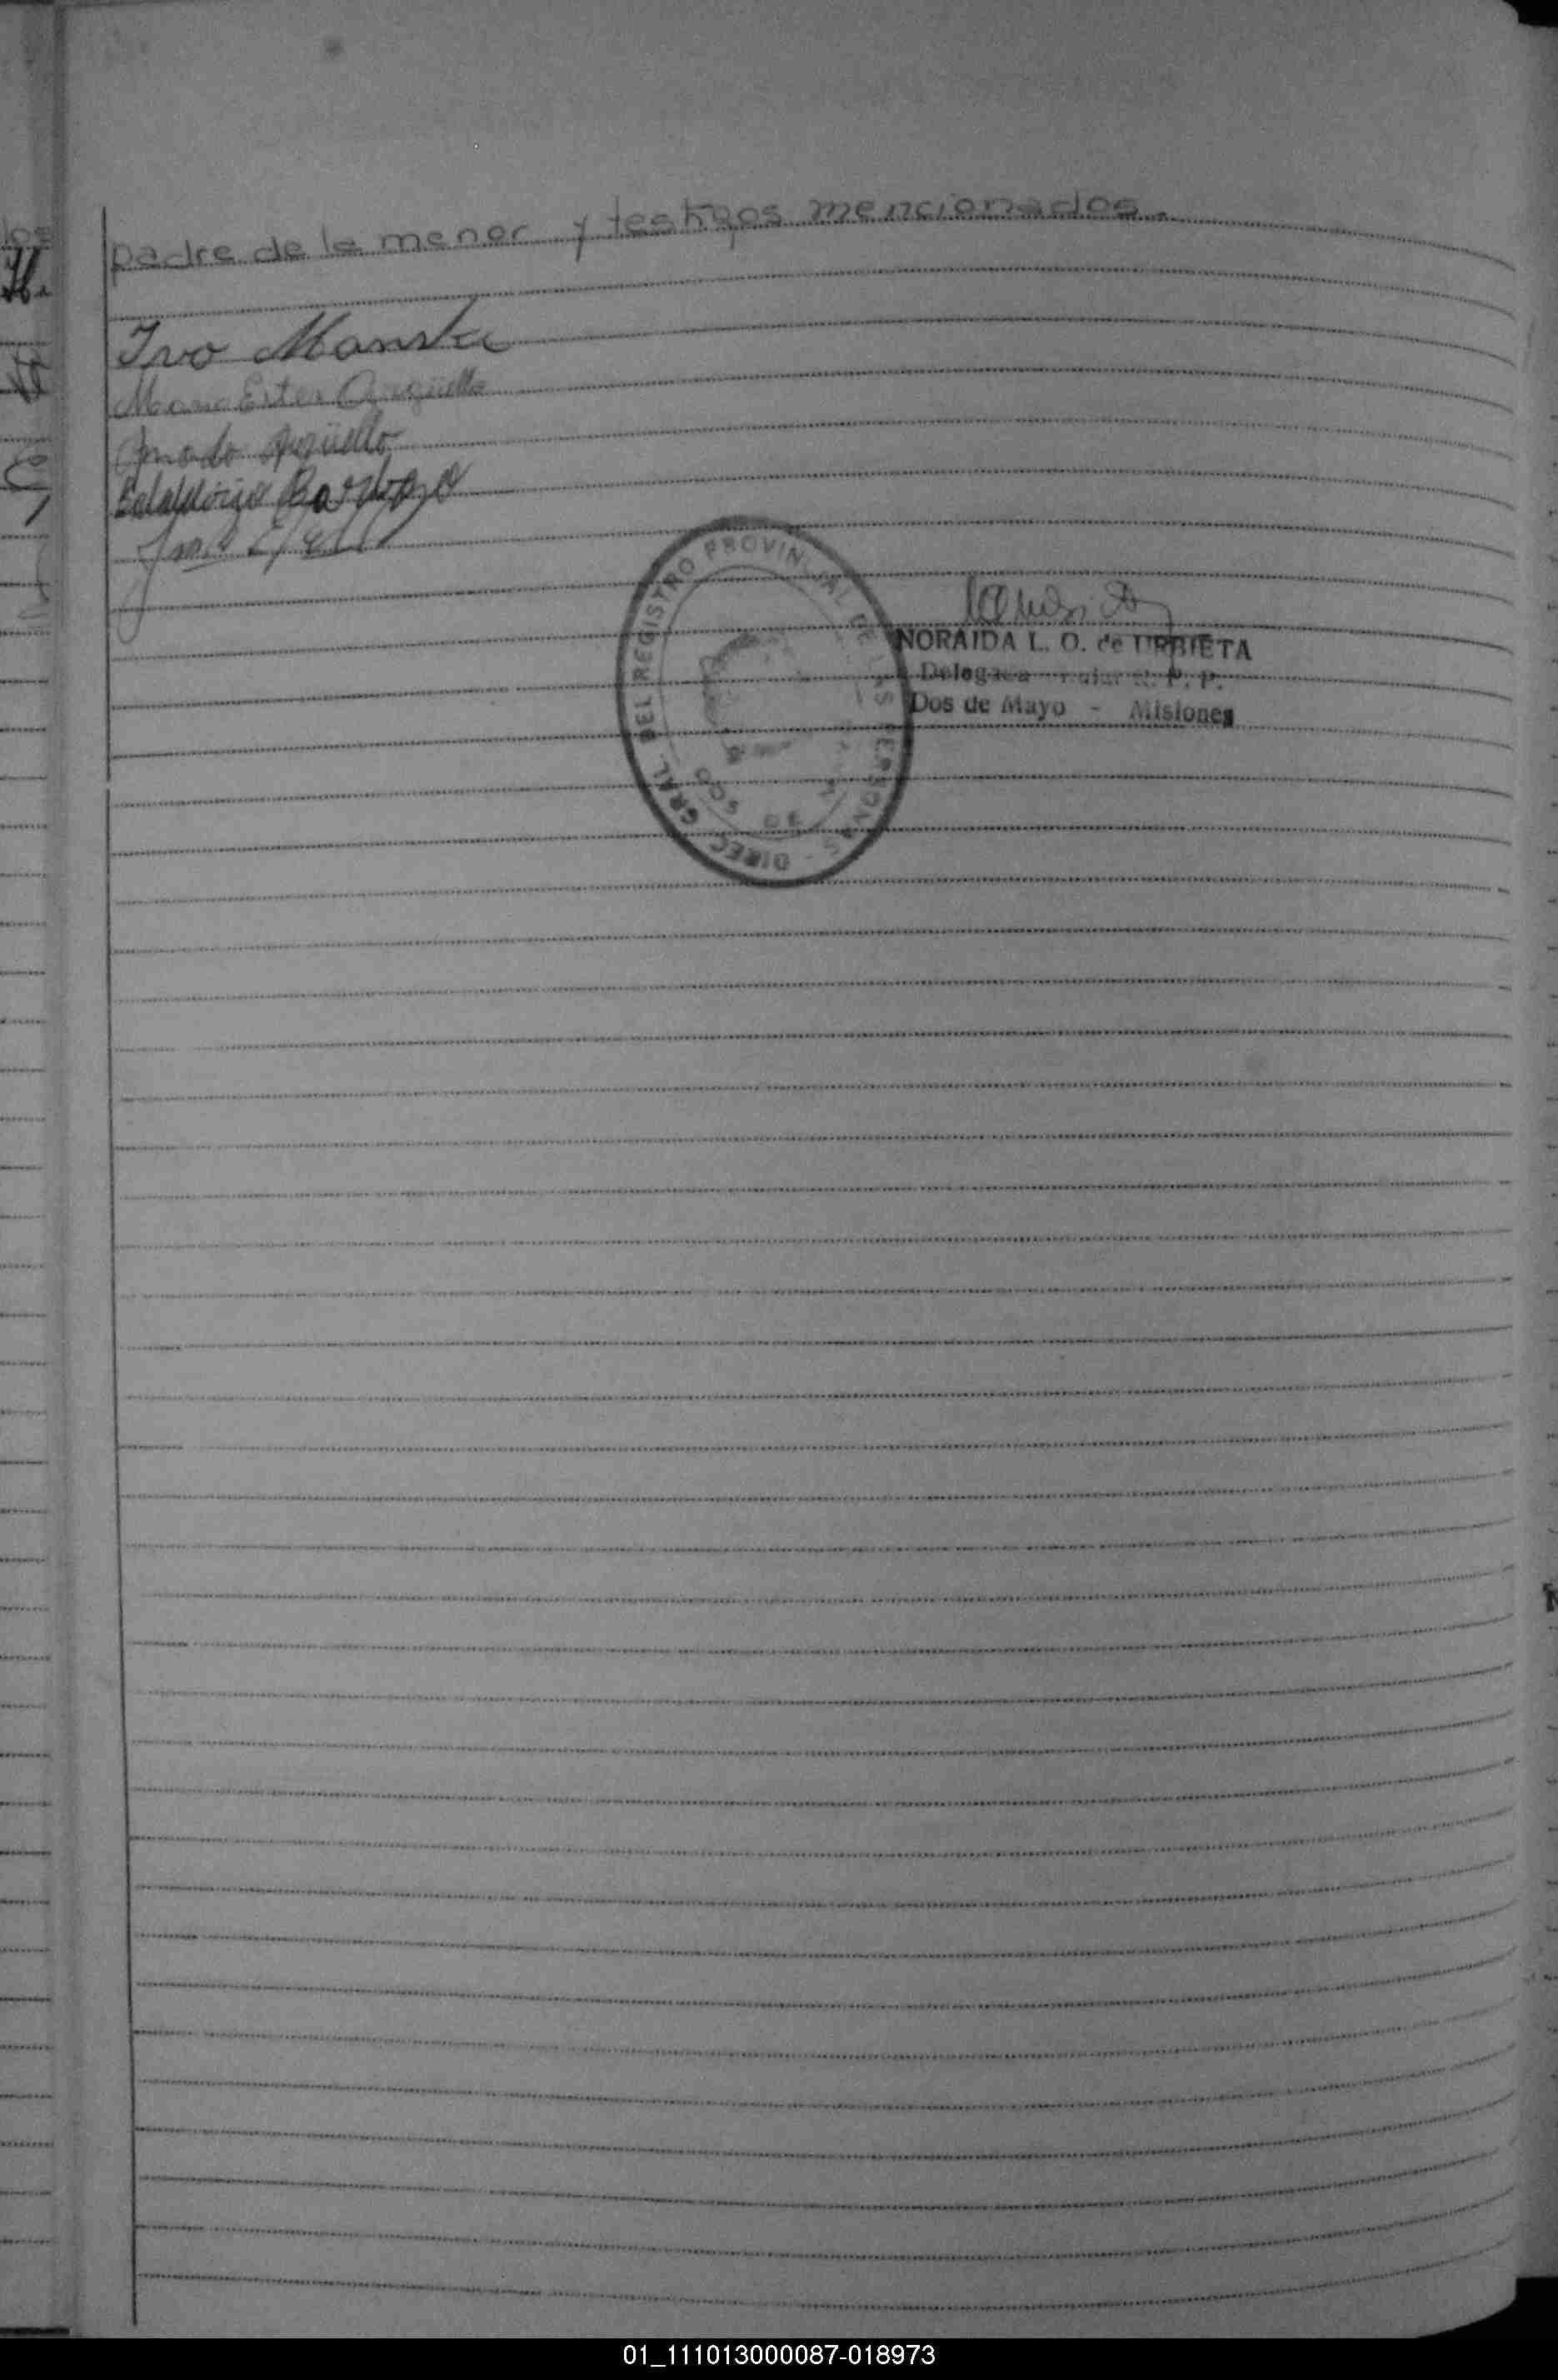 padre de la menor y testigos mencionados.
Ivo Manske
Maria Ester Argüello
Amado Argüello
Barboza
DIREC. GRAL. DEL REGISTRO PROVINCIAL DE LAS PERSONAS
NORAIDA L. O. de URRIETA
Delegada Titular R. P. P.
Dos de Mayo - Misiones
01_111013000087-018973